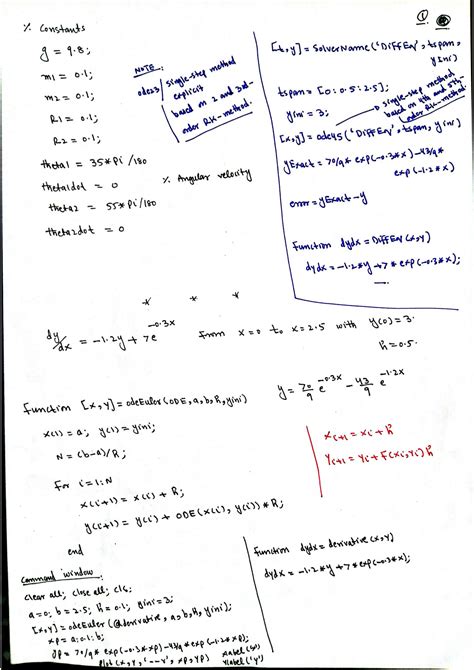 ①
% Constants
g = 9.8;
m1 = 0.1;
m2 = 0.1;
R1 = 0.1;
R2 = 0.1;
theta1 = 35*Pi/180
theta1dot = 0 % Angular velocity
theta2 = 55*Pi/180
theta2dot = 0
NOTE:
ode23 single-step method
explicit
based on 2 and 3rd-
order RK-method.
[t,y] = SolverName('DiffEq', tspan,
yini)
tspan = [0:0.5:2.5];
yini = 3;
single-step method
based on 4th and 5th-
order RK-method.
[x,y] = ode45('DiffEq', tspan, yini)
yExact = 70/9* exp(-0.3*x)-43/9*
exp(-1.2*x)
error = yExact-y
function dydx = DiffEq(x,y)
dydx = -1.2*y+7*exp(-0.3*x);
* * *
dy/dx = -1.2y + 7e^-0.3x from x=0 to x=2.5 with y(0)=3.
h=0.5.
y = 70/9 e^-0.3x - 43/9 e^-1.2x
function [x,y] = odeEuler(ODE,a,b,h,yini)
x(1) = a; y(1) = yini;
N = (b-a)/h;
for i=1:N
x(i+1) = x(i) + h;
y(i+1) = y(i) + ODE(x(i), y(i))*h;
end
xi+1 = xi+h
yi+1 = yi+F(xi,yi)h
function dydx = derivative(x,y)
dydx = -1.2*y+7*exp(-0.3*x);
Command window
clear all; close all; clc;
a=0; b=2.5; h=0.1; yini=3;
[x,y] = odeEuler(@derivative, a,b,h,yini);
xp = a:0.1:b;
yp = 70/9* exp(-0.3*xp)-43/9* exp(-1.2*xp);
plot(x,y,'--r', xp,yp)
xlabel('x')
ylabel('y')